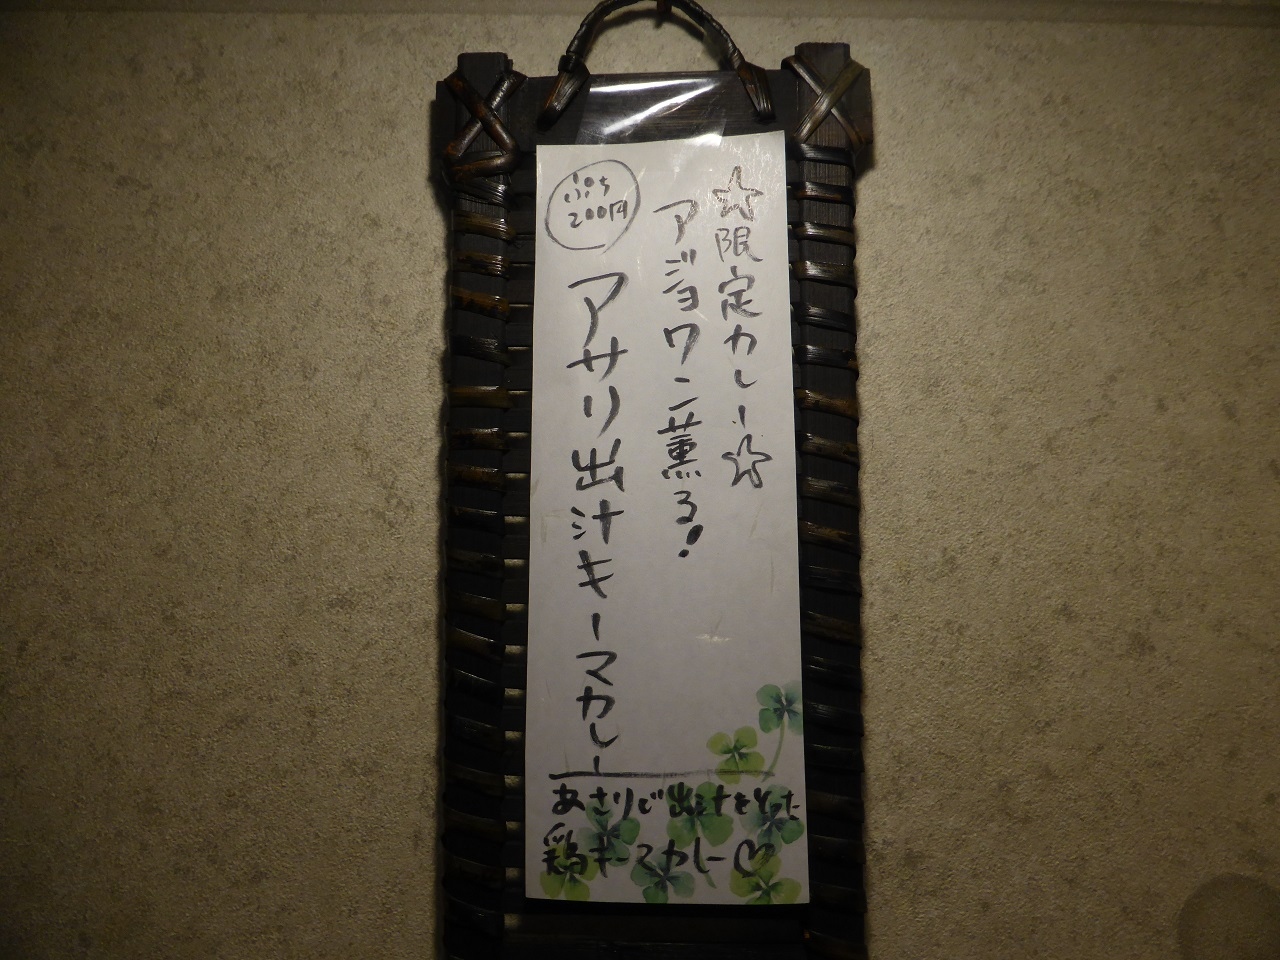 ☆限定カレー☆
アジョワン薫る!
ぷち
200円
アサリ出汁キーマカレー
あさりで出汁をとった
鶏キーマカレー♡